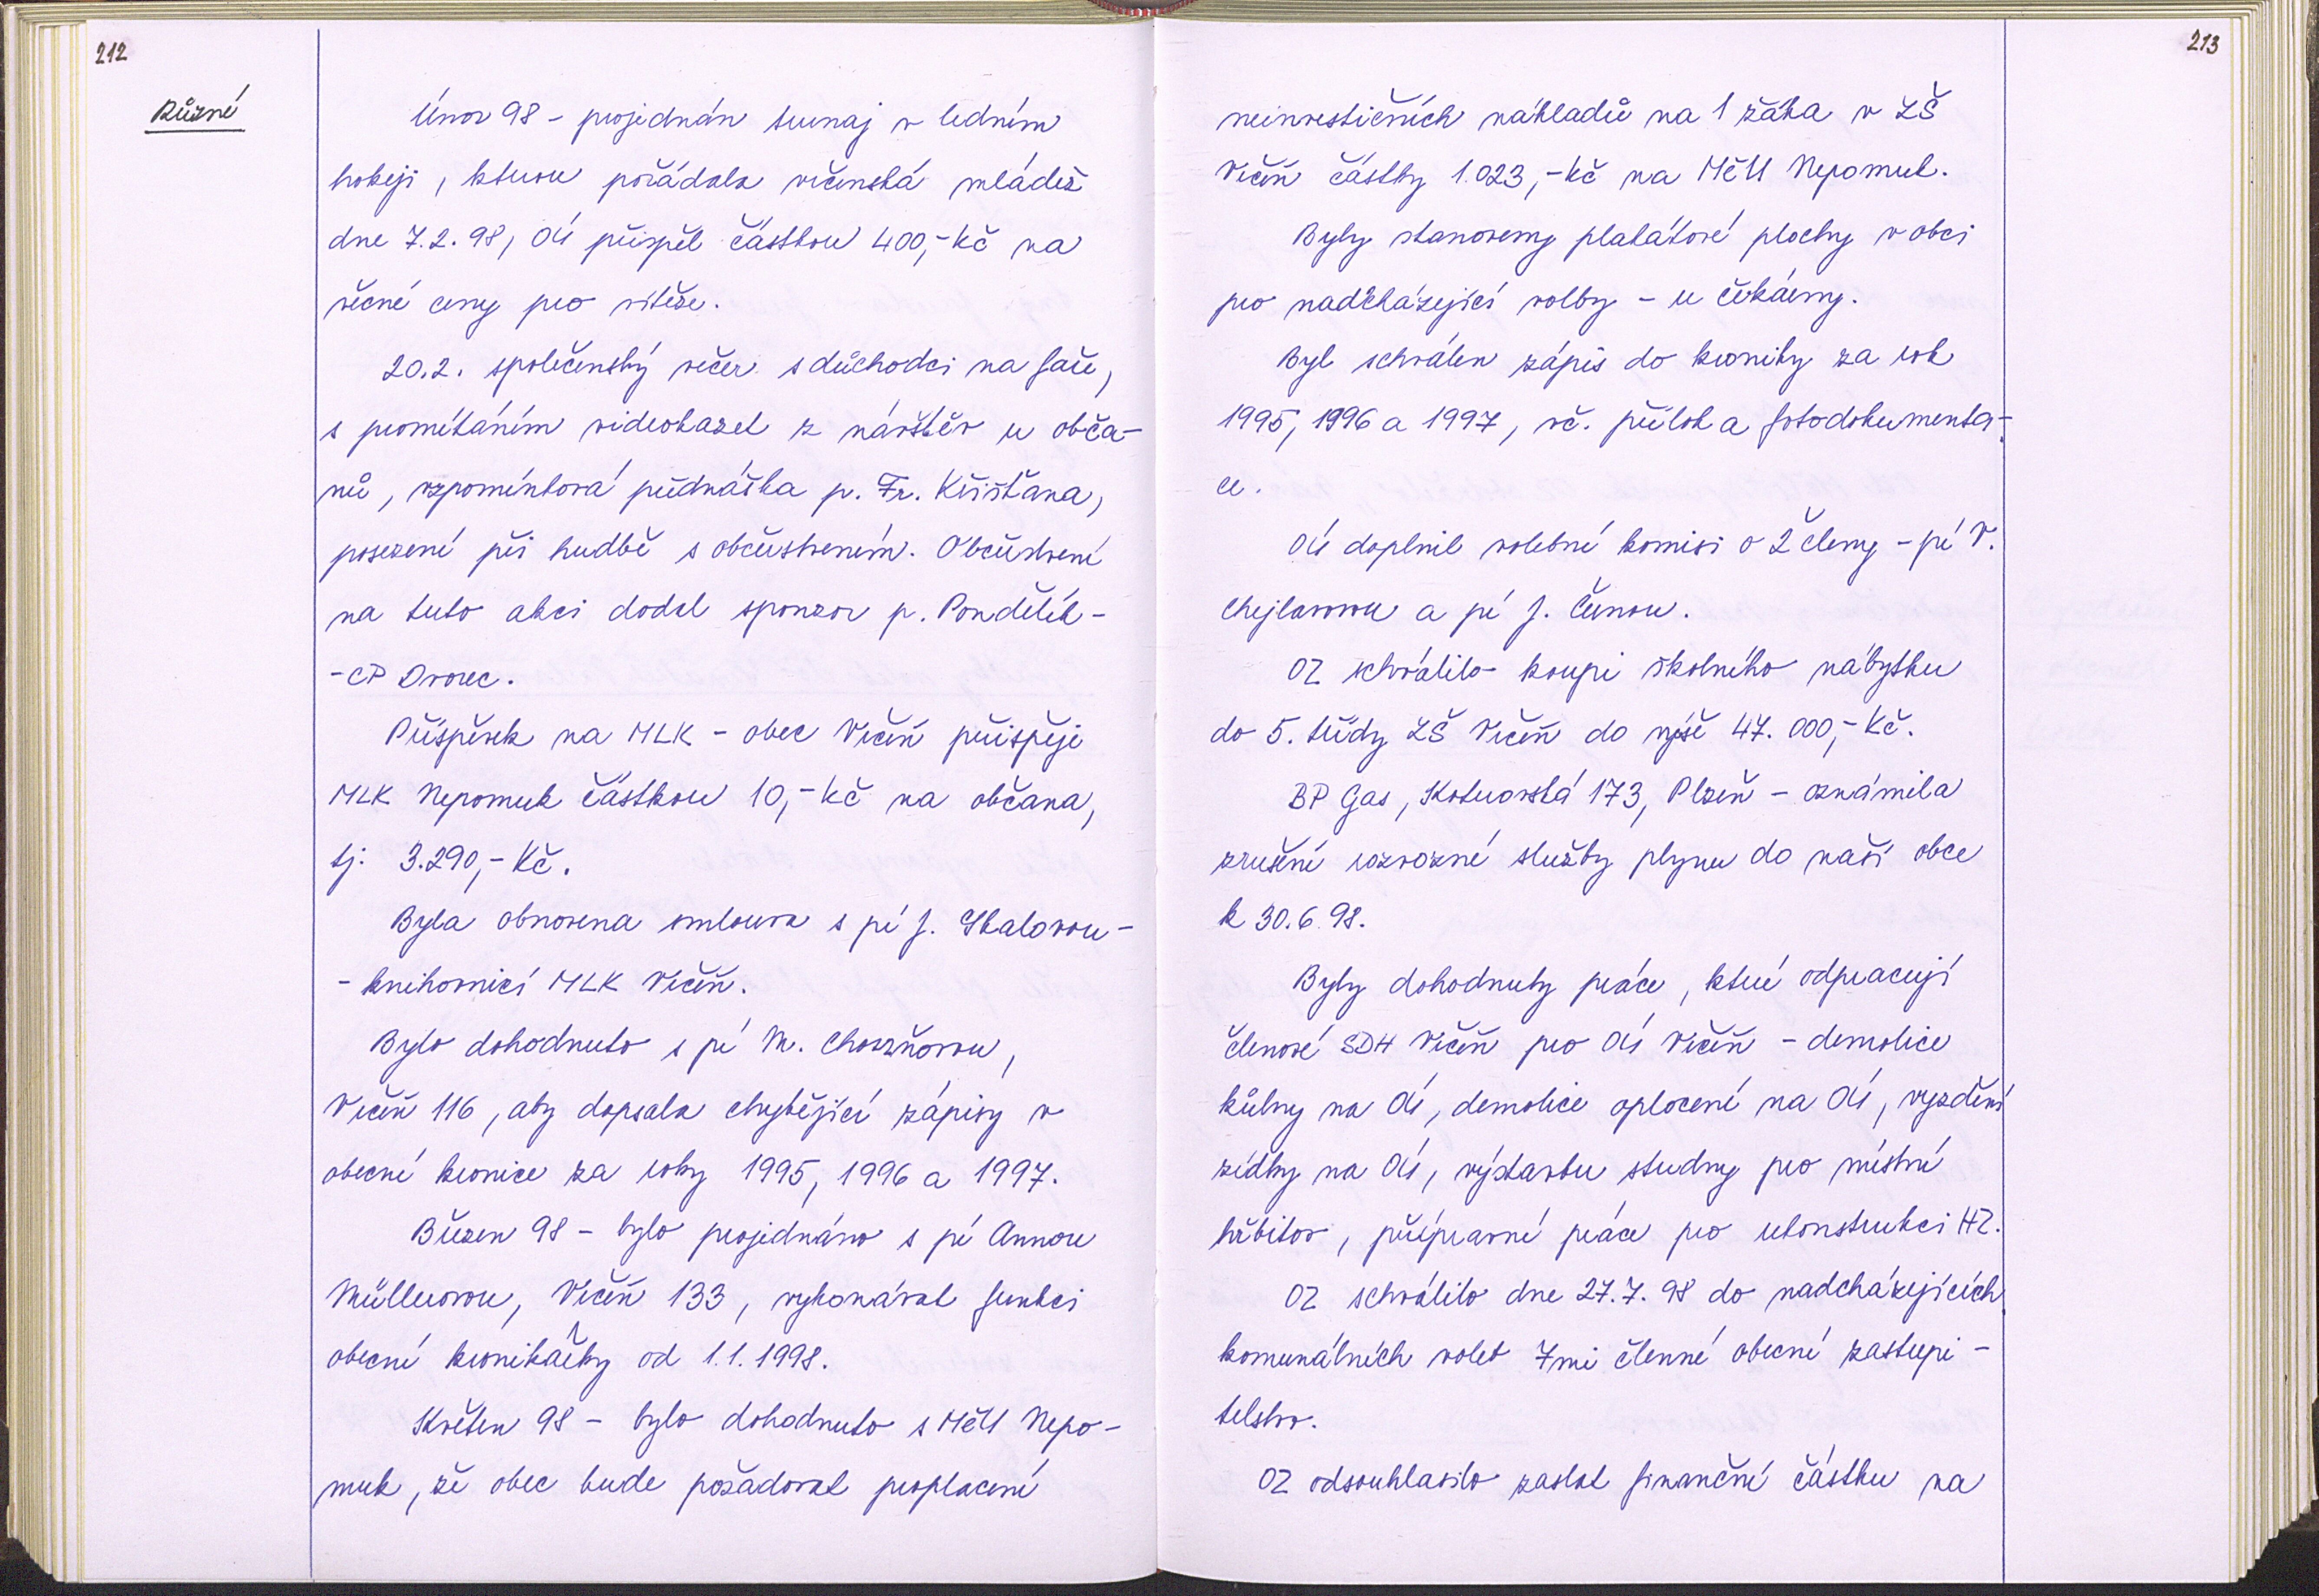 212
Různé
Únor 98 - projednán turnaj v ledním
hokeji, kterou pořádala vrčenská mládež
dne 7.2.98, OÚ přispěl částkou 400,- Kč na
věcné ceny pro vítěze.
20.2. společenský večer s důchodci na faře,
s promítáním videokazet z návštěv u obča-
nů, vzpomínková přednáška p. Fr. Křišťana,
posezení při hudbě s občerstvením. Občerstvení
na tuto akci dodal sponzor p. Pondělík -
- CP Dvorec.
Příspěvek na MLK - obec Vrčeň přispěje
MLK Nepomuk částkou 10,- Kč na občana,
tj. 3.290,- Kč.
Byla obnovena smlouva s pí J. Skalovou -
- knihovnicí MLK Vrčeň.
Bylo dohodnuto s pí M. Chouzňovou,
Vrčeň 116, aby dopsala chybějící zápisy v
obecní kronice za roky 1995, 1996 a 1997.
Březen 98 - bylo projednáno s pí Annou
Müllerovou, Vrčeň 133, vykonávat funkci
obecní kronikářky od 1.1.1998.
Květen 98 - bylo dohodnuto s MěÚ Nepo-
muk, že obec bude požadovat proplacení
213
neinvestičních nákladů na 1 žáka v ZŠ
Vrčeň částky 1.023,- Kč na MěÚ Nepomuk.
Byly stanoveny plakátové plochy v obci
pro nadcházející volby - u čekárny.
Byl schválen zápis do kroniky za rok
1995, 1996 a 1997, vč. příloh a fotodokumenta-
ce.
OÚ doplnil volební komisi o 2 členy - pí V.
Chejlavovou a pí J. Černou.
OZ schválilo koupi školního nábytku
do 5. třídy ZŠ Vrčeň do výše 47.000,- Kč.
BP Gas, Koterovská 173, Plzeň - oznámila
zrušení rozvozné služby plynu do naší obce
k 30.6.98.
Byly dohodnuty práce, které odpracují
členové SDH Vrčeň pro OÚ Vrčeň - demolice
kůlny na OÚ, demolice oplocení na OÚ, vyzdění
zídky na OÚ, výstavbu studny pro místní
hřbitov, přípravné práce pro rekonstrukci HZ.
OZ schválilo dne 27.7.98 do nadcházejících
komunálních voleb 7mi členné obecní zastupi-
telstvo.
OZ odsouhlasilo zaslat finanční částku na